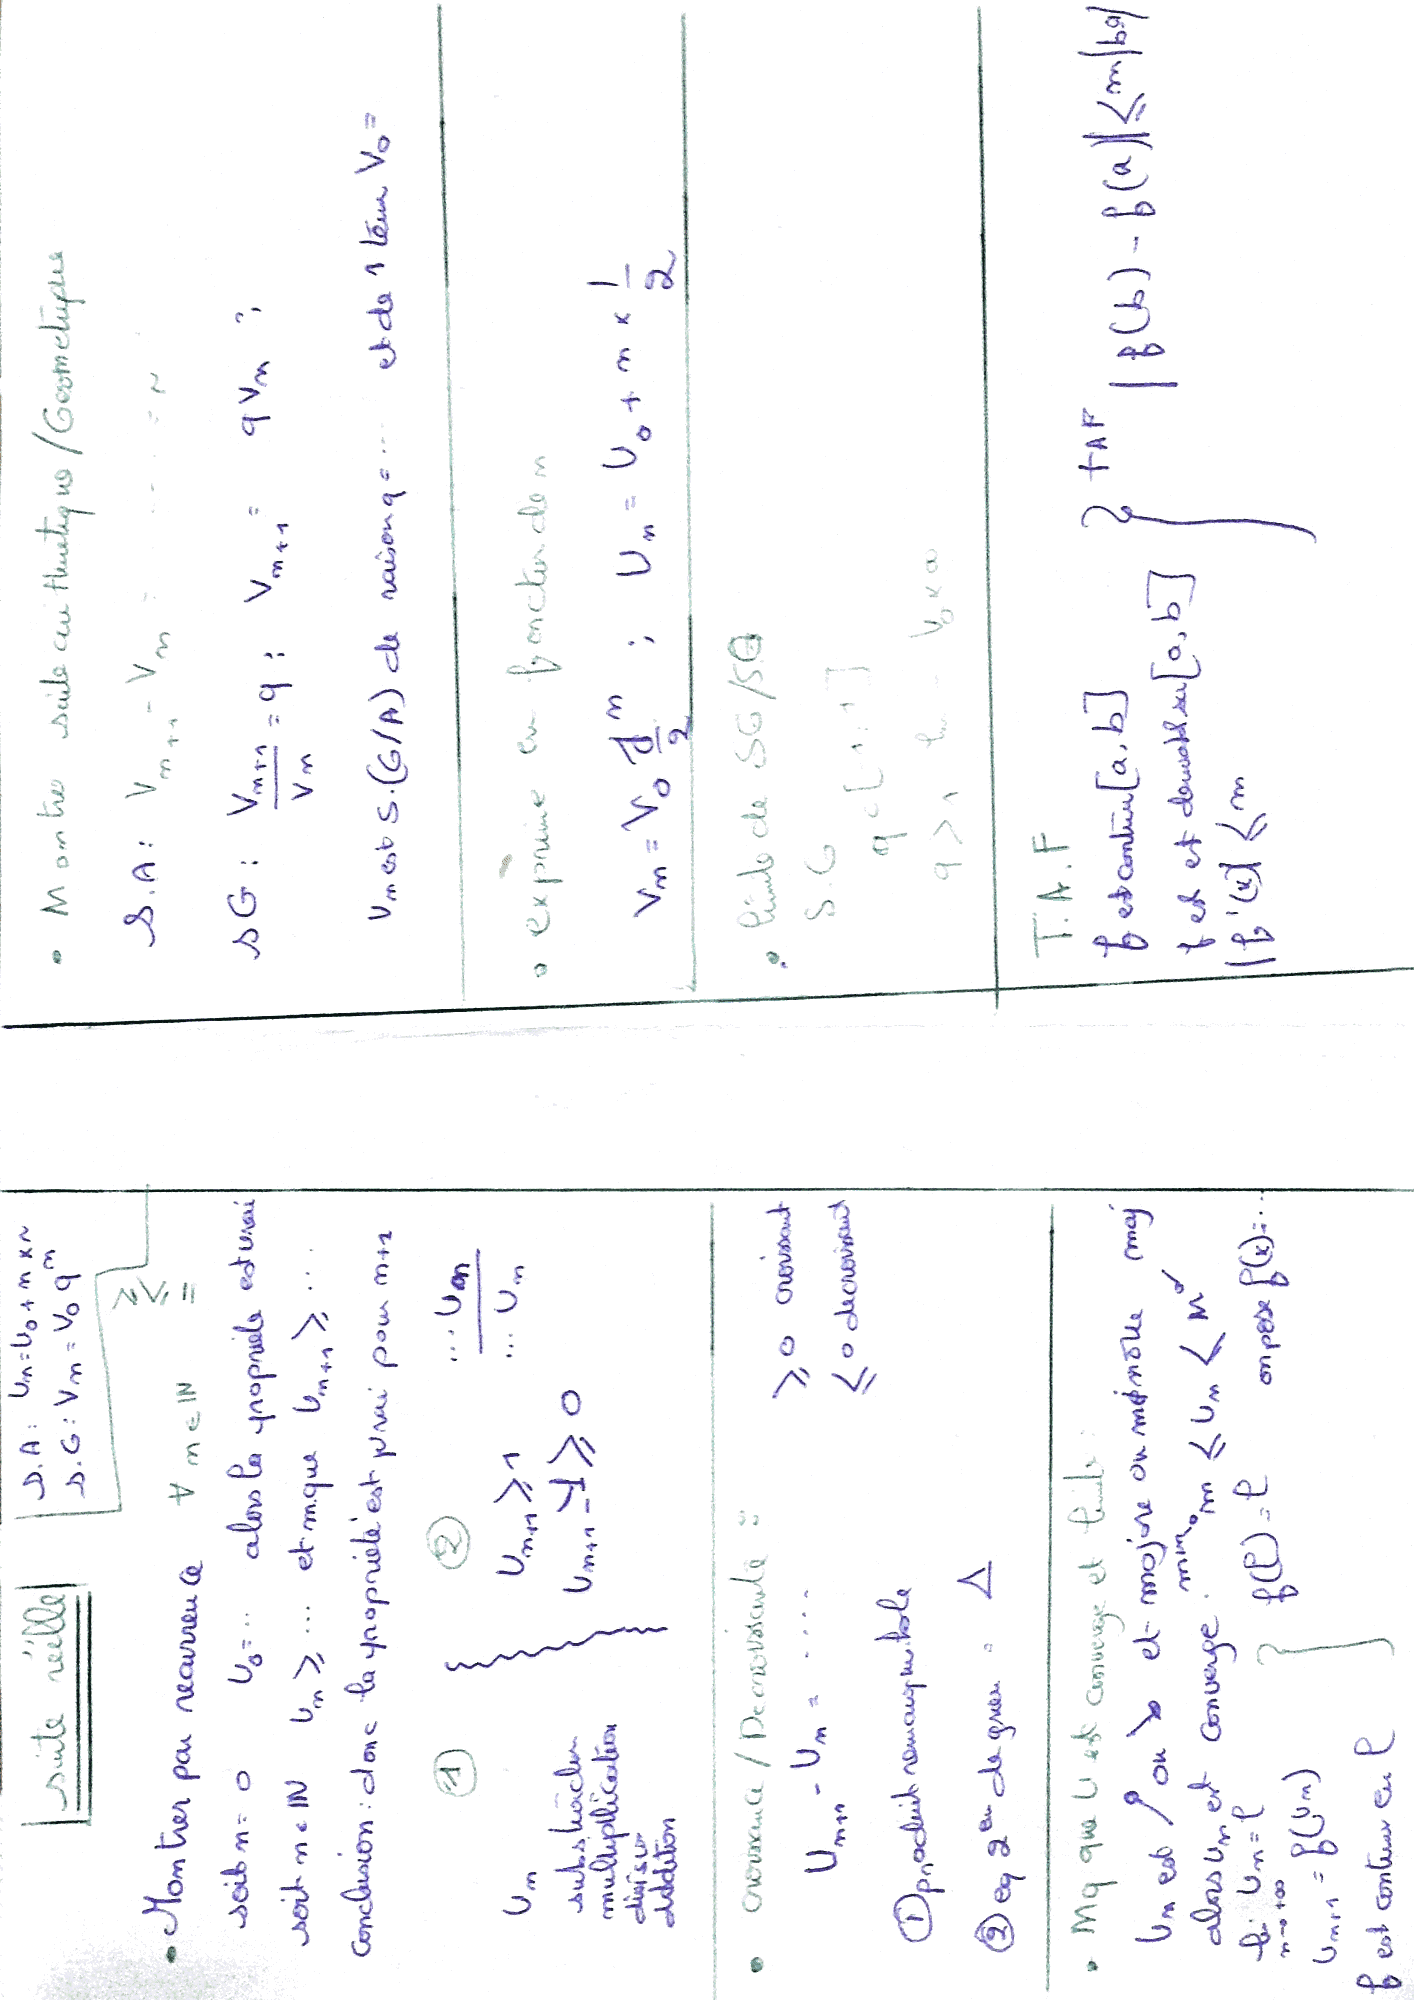 suite réelle
S.A : Un = U0 + n x r
S.G : Vn = V0 q^n
• Montrer par recurrence ∀ n ∈ IN ≥ ≤ =
soit n = 0 U0 = .. alors la propriete est vrai
soit n ∈ IN Un ≥ ... et mque Un+1 ≥ ...
Conclusion : donc la propriété est vrai pour n+1
① ②
Un
substraction
multiplication
division
addition
Un+1 ≥ 1
Un+1 - 1 ≥ 0
... Un
... Un
• croissance / Decroissante :
Un+1 - Un = .... ≥ 0 croissant
≤ 0 decroissant
① produit remarquable
② eq 2em degreu . Δ
• Mq que U est converge et limite :
Un est ↗ ou ↘ et majore ou minorée maj
alors Un est converge . min m ≤ Un ≤ M
lim Un = l
n→+∞
Un+1 = f(Un) } f(l) = l on pose f(x) = ...
f est continue en l
• Montre suite arithmetique / Geometrique
S.A : Vn+1 - Vn = ... = r
SG : Vn+1 / Vn = q ; Vn+1 = q Vn ;
Vn est S.(G/A) de raison q = ... et de 1 term V0 =
• exprime en fonction de n
Vn = V0 1/2^n ; Un = U0 + n x 1/2
• limite de SG/SA
S.G
q ∈ [-1,1]
q > 1 lim V0 x ∞
T.A.F
f est continu [a,b]
f est et derivable sur [a,b] } TAF |f(b) - f(a)| ≤ m|ba|
|f'(x)| ≤ m